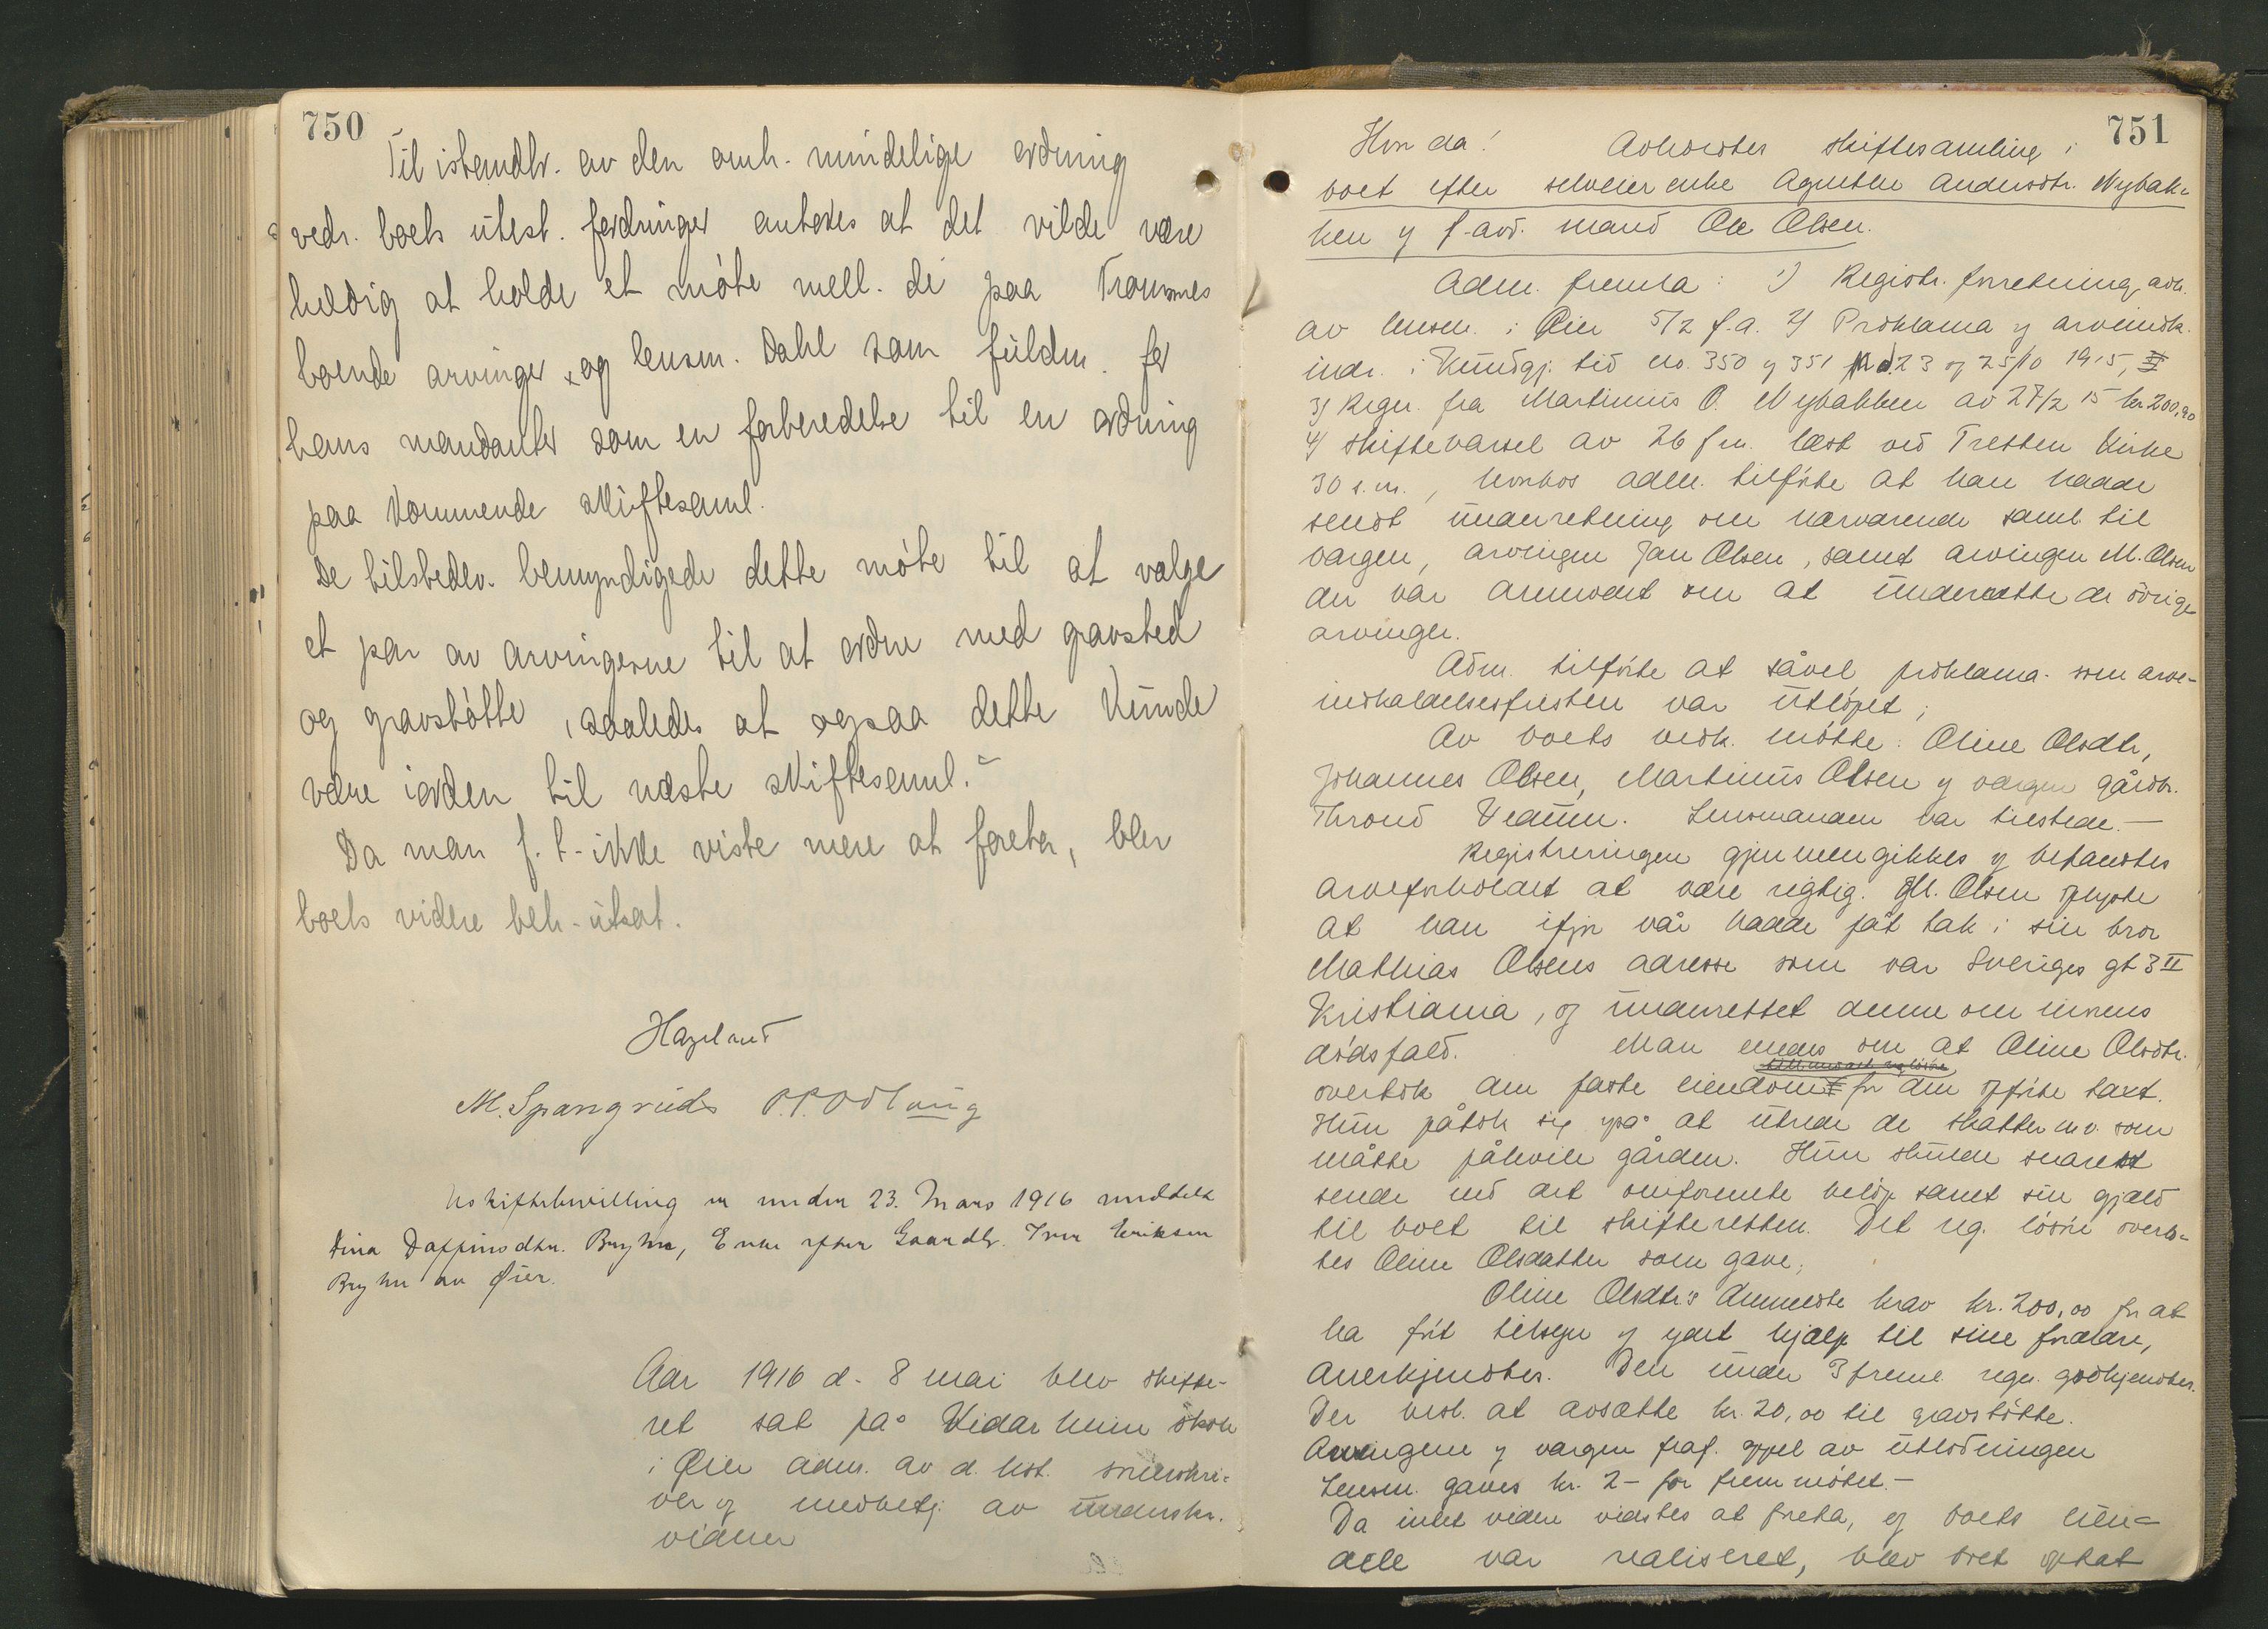 750
Til istandbr. av den omh. mindelige ordning
vedr. boets utest. fordringer antokes at det vilde være
heldig at holde et møte mell. de paa Tromsnes
boende arvinger og lensm. Dahl som fuldm. for
hans mandanter som en forberedelse til en ordning
paa kommende skiftesaml.
De tilstedev. bemyndigede dette møte til at vælge
et par av arvingerne til at ordne med gravsted
og gravstøtte, saaledes at ogsaa dette kunde
være iorden til næste skiftesaml.
Da man f. t. ikke viste mere at foreta, blev
boets videre beh. utsat.
Hagelund
M. Spangrud O.P. Odlaug
Uskiftebevilling er under 23. Mars 1916 meddelt
Dina Daffinsdtr. Bryhn, Enke efter Gaardbr. Iver Eriksen
Bryhn av Øier.
Aar 1916 d. 8 mai blev skifte-
ret sat på Vidarheim skole
i Øier adm. av d. kst. sorenskri-
ver og medbetj. av underskr.
vidner
751
Hvorda! Avholdtes skiftesamling i
boet efter selveierenke Agnethe Andersdtr. Nybak-
ken og f. avd. mand Ole Olsen.
Adm. fremla: 1) Registr. forretning avh.
av lensm. i Øier 5/2 f.a. 2) Proklama og arveindk.
indr. i Kundgj. tid no. 350 og 351 for 23 og 25/10 1915,
3) Regn. fra Martinius O. Nybakken av 27/2 15 kr. 200,90
4) Skiftevarsel av 26 f.m. læst ved Tretten Kirke
30 s.m., hvorhos adm. tilførte at han hadde
sendt underretning om nærværende saml. til
værgen, arvingen Jan Olsen, samt arvingen M. Olsen
der var anmodet om at underrette de øvrige
arvinger.
Adm. tilførte at såvel proklama- som arve-
indkaldelsesfristen var utløpet;
Av boets vedk. møtte: Oline Olsdtr,
Johannes Olsen, Martinius Olsen og værgen gårdbr.
Thrond Vedum. Lensmanden var tilstede.—
Registreringen gjennemgikkes og befandtes
arveforholdet at være rigtig. M. Olsen oplyste
at han ifjor vår hadde fåt tak i sin bror
Mathias Olsens adresse som var Sveriges gt 3 II
Kristiania, og underrettet denne om morens
dødsfald. Man enedes om at Oline Olsdtr.
overtok den faste eiendom for den opførte taxt.
Hun påtok sig også at utrede de skatter m.v. som
måtte påhvile gården. Hun skulde snarest
sende ind det omforente beløp samt sin gjæld
til boet til skifteretten. Det reg. løsøre overlo-
tes Oline Olsdatter som gave;
Oline Olsdtr's anmeldte krav kr. 200,00 for at
ha ført tilsyn og ydet hjælp til sine forældre,
anerkjendtes. Den under 3 freml. regn. godkjendtes.
Der besl. at avsætte kr. 20,00 til gravstøtte.
Arvingene og værgen fraf. oppel av utlodningen
Lensm. gaves kr. 2- for fremmøtet.—
Da intet videre vidstes at foreta, og boets eien-
dele var realiseret, blev boet optat